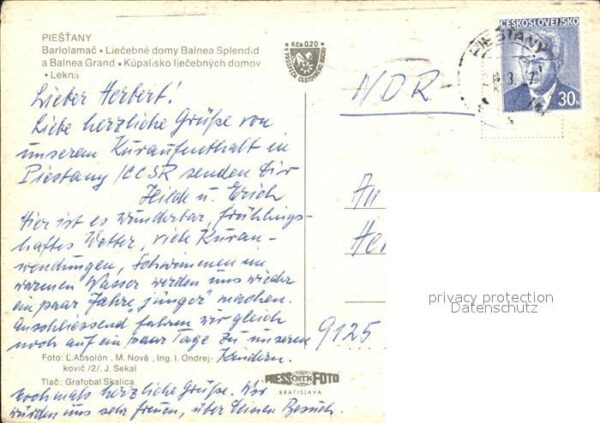 PIEŠŤANY
Bartolomač • Liečebné domy Balnea Splendid
a Balnea Grand • Kúpalisko liečebných domov
• Lekná
Kčs 0,20
Lieber Herbert!
Liebe herzliche Grüße von
unserem Kuraufenthalt in
Piestany /CCSR senden Dir
Hilde u. Erich
Hier ist es wunderbar, frühlings-
haftes Wetter, viele Kuran-
wendungen, Schwimmen im
warmen Wasser werden uns wieder
ein paar Jahre „jünger" machen.
Anschliessend fahren wir gleich
noch auf ein paar Tage zu unseren
Kindern.
Foto: Ľ. Absolón, M. Nová, Ing. I. Ondrej-
kovič /2/, J. Sekal
Tlač: Grafobal Skalica
nochmals herzliche Grüße. Wir
würden uns sehr freuen, über Deinen Besuch.
PRESS ČSTK FOTO
BRATISLAVA
DDR
ČESKOSLOVENSKO
30h
PIEŠŤANY
An
Her
9125
privacy protection
Datenschutz